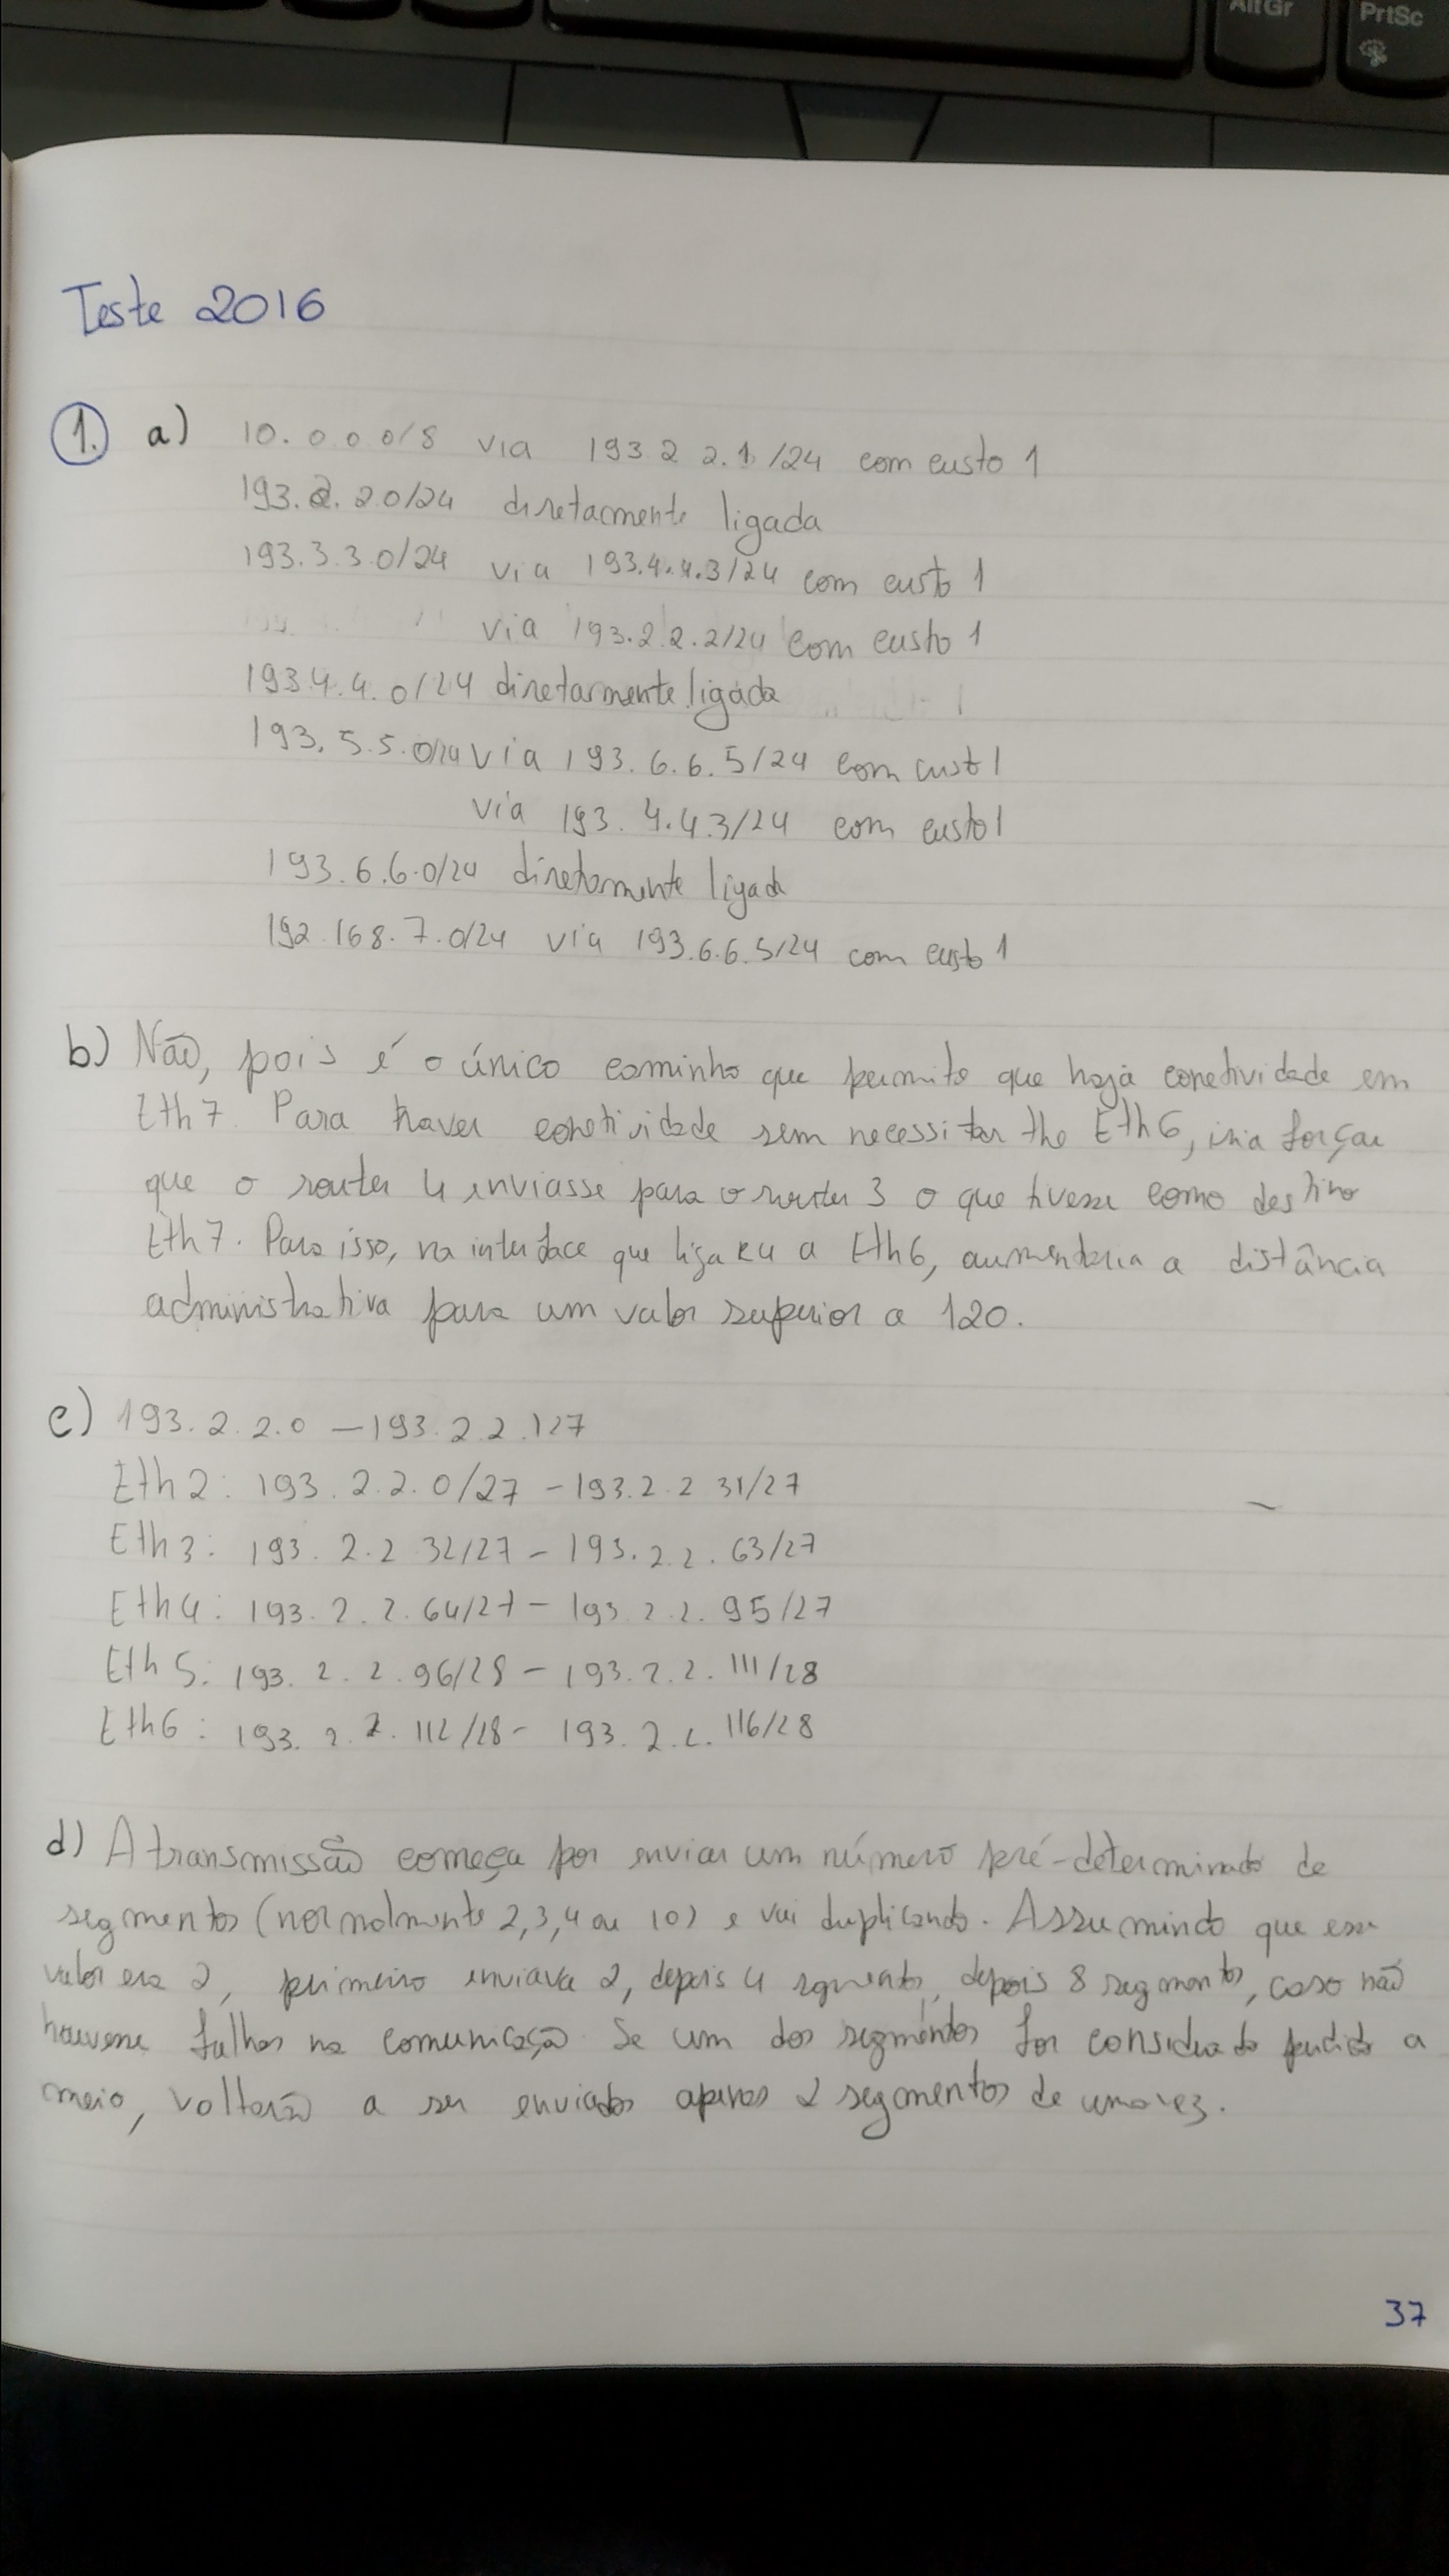 AltGr
PrtSc
Teste 2016
1. a) 10.0.0.0/8 via 193.2.2.1/24 com custo 1
193.2.2.0/24 diretamente ligada
193.3.3.0/24 via 193.4.4.3/24 com custo 1
via 193.2.2.2/24 com custo 1
193.4.4.0/24 diretamente ligada
193.5.5.0/24 via 193.6.6.5/24 com cust 1
via 193.4.4.3/24 com custo 1
193.6.6.0/24 diretamente ligada
192.168.7.0/24 via 193.6.6.5/24 com custo 1
b) Não, pois é o único caminho que permite que haja conetividade em
Eth7. Para haver conetividade sem necessitar the Eth6, iria forçar
que o router 4 enviasse para o router 3 o que tivesse como destino
Eth7. Para isso, na interface que liga R4 a Eth6, aumentaria a distância
administrativa para um valor superior a 120.
c) 193.2.2.0 - 193.2.2.127
Eth2: 193.2.2.0/27 - 193.2.2.31/27
Eth3: 193.2.2.32/27 - 193.2.2.63/27
Eth4: 193.2.2.64/27 - 193.2.2.95/27
Eth5: 193.2.2.96/28 - 193.2.2.111/28
Eth6: 193.2.2.112/28 - 193.2.2.116/28
d) A transmissão começa por enviar um número pré-determinado de
segmentos (normalmente 2,3,4 ou 10) e vai duplicando. Assumindo que esse
valor era 2, primeiro enviava 2, depois 4 segmentos, depois 8 segmentos, caso não
houvesse falhas na comunicação. Se um dos segmentos for considerado perdido a
meio, voltarão a ser enviados apenas 2 segmentos de uma vez.
37